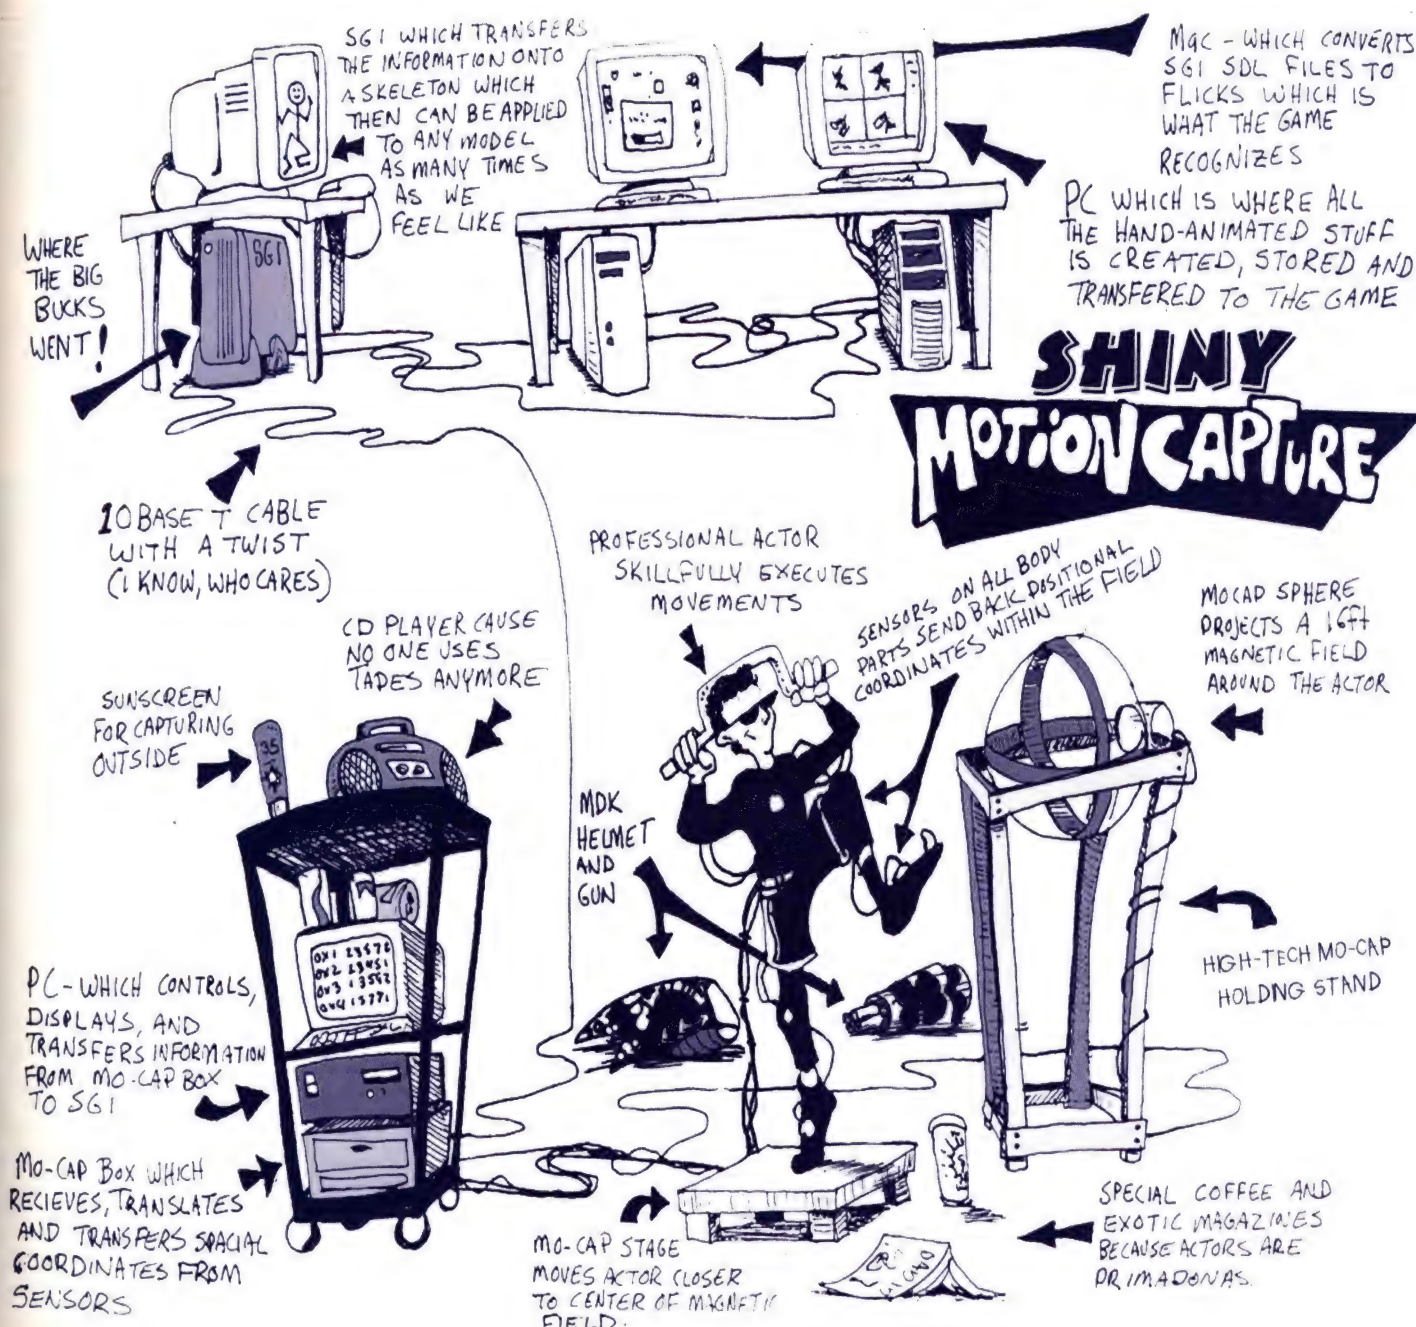 SGI WHICH TRANSFERS
THE INFORMATION ONTO
A SKELETON WHICH
THEN CAN BE APPLIED
TO ANY MODEL
AS MANY TIMES
AS WE
FEEL LIKE
MAC - WHICH CONVERTS
SGI SDL FILES TO
FLICKS WHICH IS
WHAT THE GAME
RECOGNIZES
PC WHICH IS WHERE ALL
THE HAND-ANIMATED STUFF
IS CREATED, STORED AND
TRANSFERED TO THE GAME
WHERE
THE BIG
BUCKS
WENT!
SGI
SHINY
MOTION CAPTURE
10 BASE T CABLE
WITH A TWIST
(I KNOW, WHO CARES)
PROFESSIONAL ACTOR
SKILLFULLY EXECUTES
MOVEMENTS
SENSORS ON ALL BODY
PARTS SEND BACK POSITIONAL
COORDINATES WITHIN THE FIELD
MOCAP SPHERE
PROJECTS A 16ft
MAGNETIC FIELD
AROUND THE ACTOR
CD PLAYER CAUSE
NO ONE USES
TAPES ANYMORE
SUNSCREEN
FOR CAPTURING
OUTSIDE
35
MDK
HELMET
AND
GUN
0X1 23572
0X2 23451
0X3 13552
0X4 13771
HIGH-TECH MO-CAP
HOLDNG STAND
PC - WHICH CONTROLS,
DISPLAYS, AND
TRANSFERS INFORMATION
FROM MO-CAP BOX
TO SGI
MO-CAP BOX WHICH
RECIEVES, TRANSLATES
AND TRANSFERS SPACIAL
COORDINATES FROM
SENSORS
MO-CAP STAGE
MOVES ACTOR CLOSER
TO CENTER OF MAGNETIC
FIELD.
SPECIAL COFFEE AND
EXOTIC MAGAZINES
BECAUSE ACTORS ARE
PRIMADONAS.